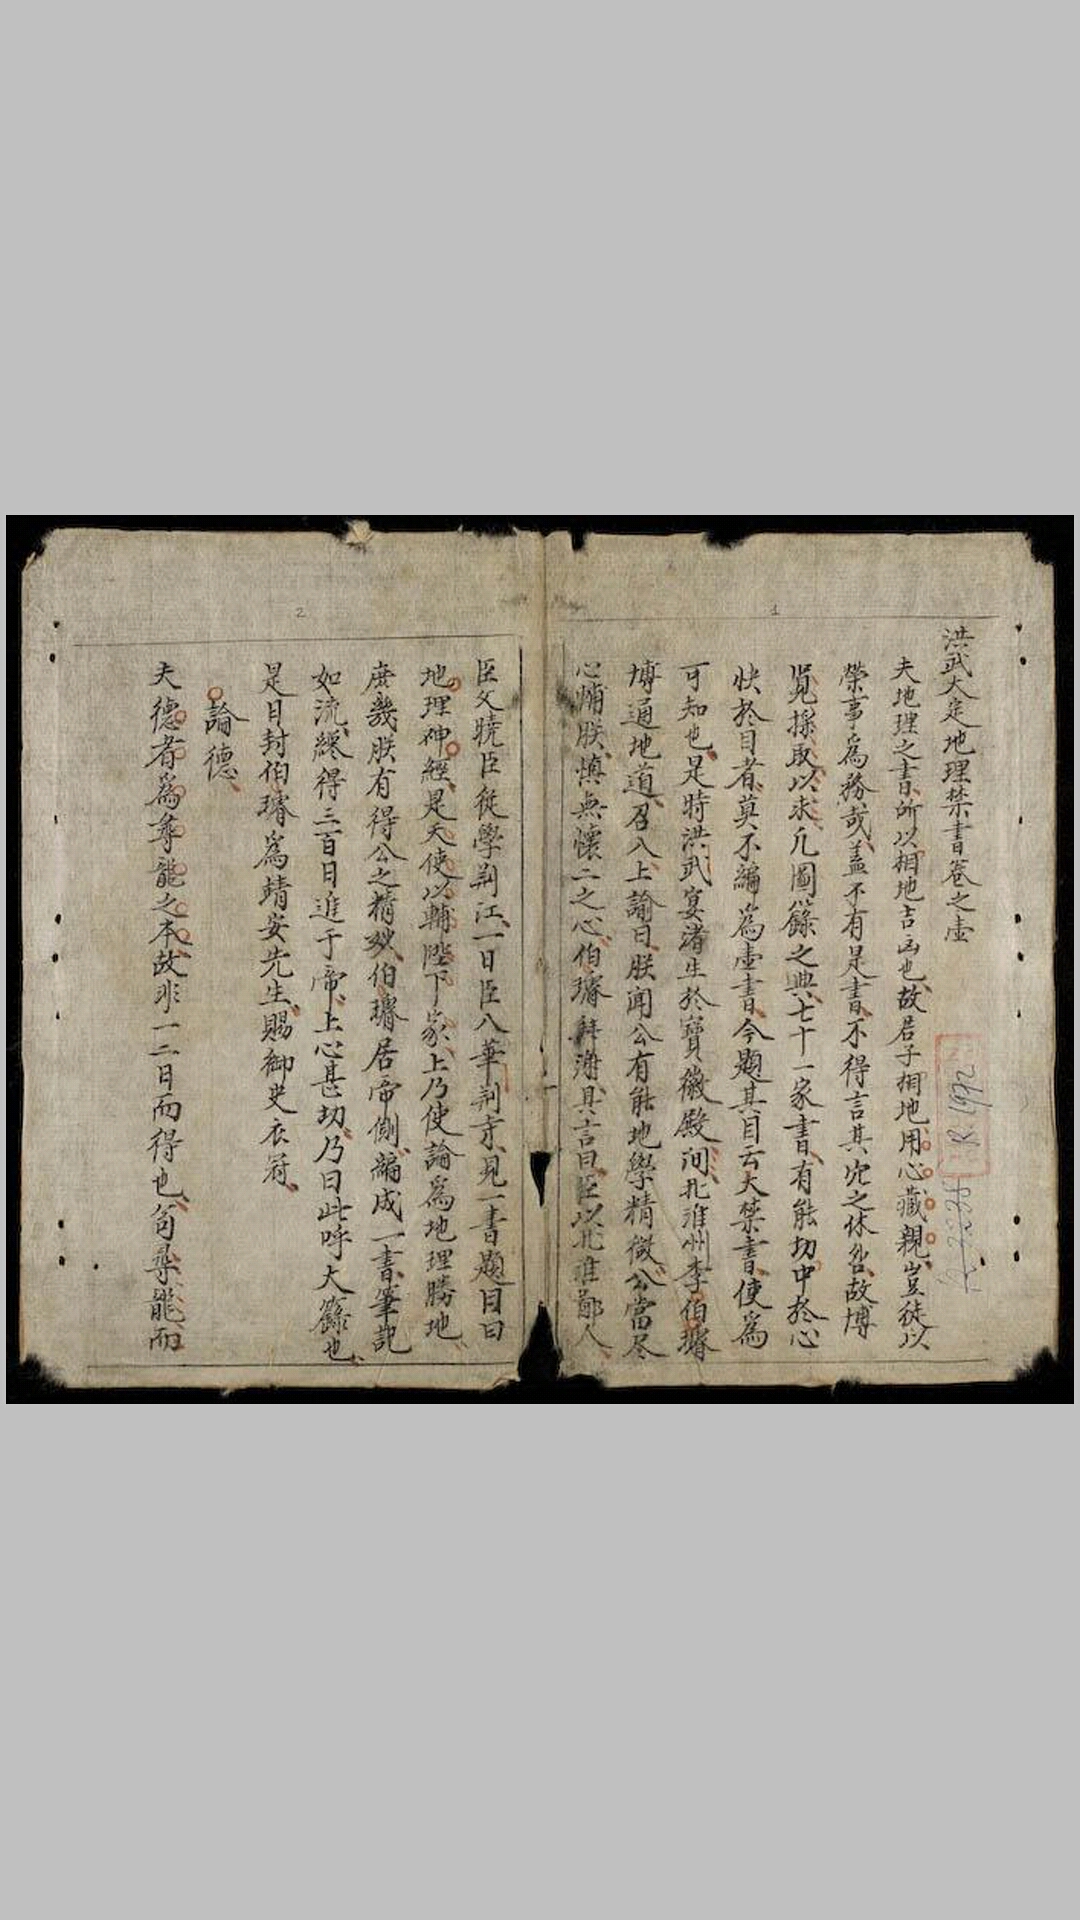 1
洪武大定地理禁書卷之壹
夫地理之書所以相地吉凶也故君子相地用心藏親豈徒以
榮事爲務哉盖不有是書不得言其穴之休咎故博
覓採取以求凡圖籙之典七十一家書有能切中於心
快於目者莫不編爲壹書今題其目云大禁書使爲
可知也是時洪武宴渚生於寶徽殿间北淮州李伯璿
博通地道召入上諭曰朕聞公有能地學精微公當尽
心輔朕慎無懷二之心伯璿拜謝其言曰臣以北淮鄙人
2
臣父曉臣從學荆江一日臣入華荆寺見一書題目曰
地理神經是天使以輔陛下家上乃使論爲地理勝地
庶幾朕有得公之精妙伯璿居帝側編成一書筆記
如流纔得三百日進于帝上心甚切乃曰此呼大籙也
是日封伯璿爲靖安先生賜御史衣冠
論德
夫德者爲尋龍之本故非一二日而得也苟尋龍而